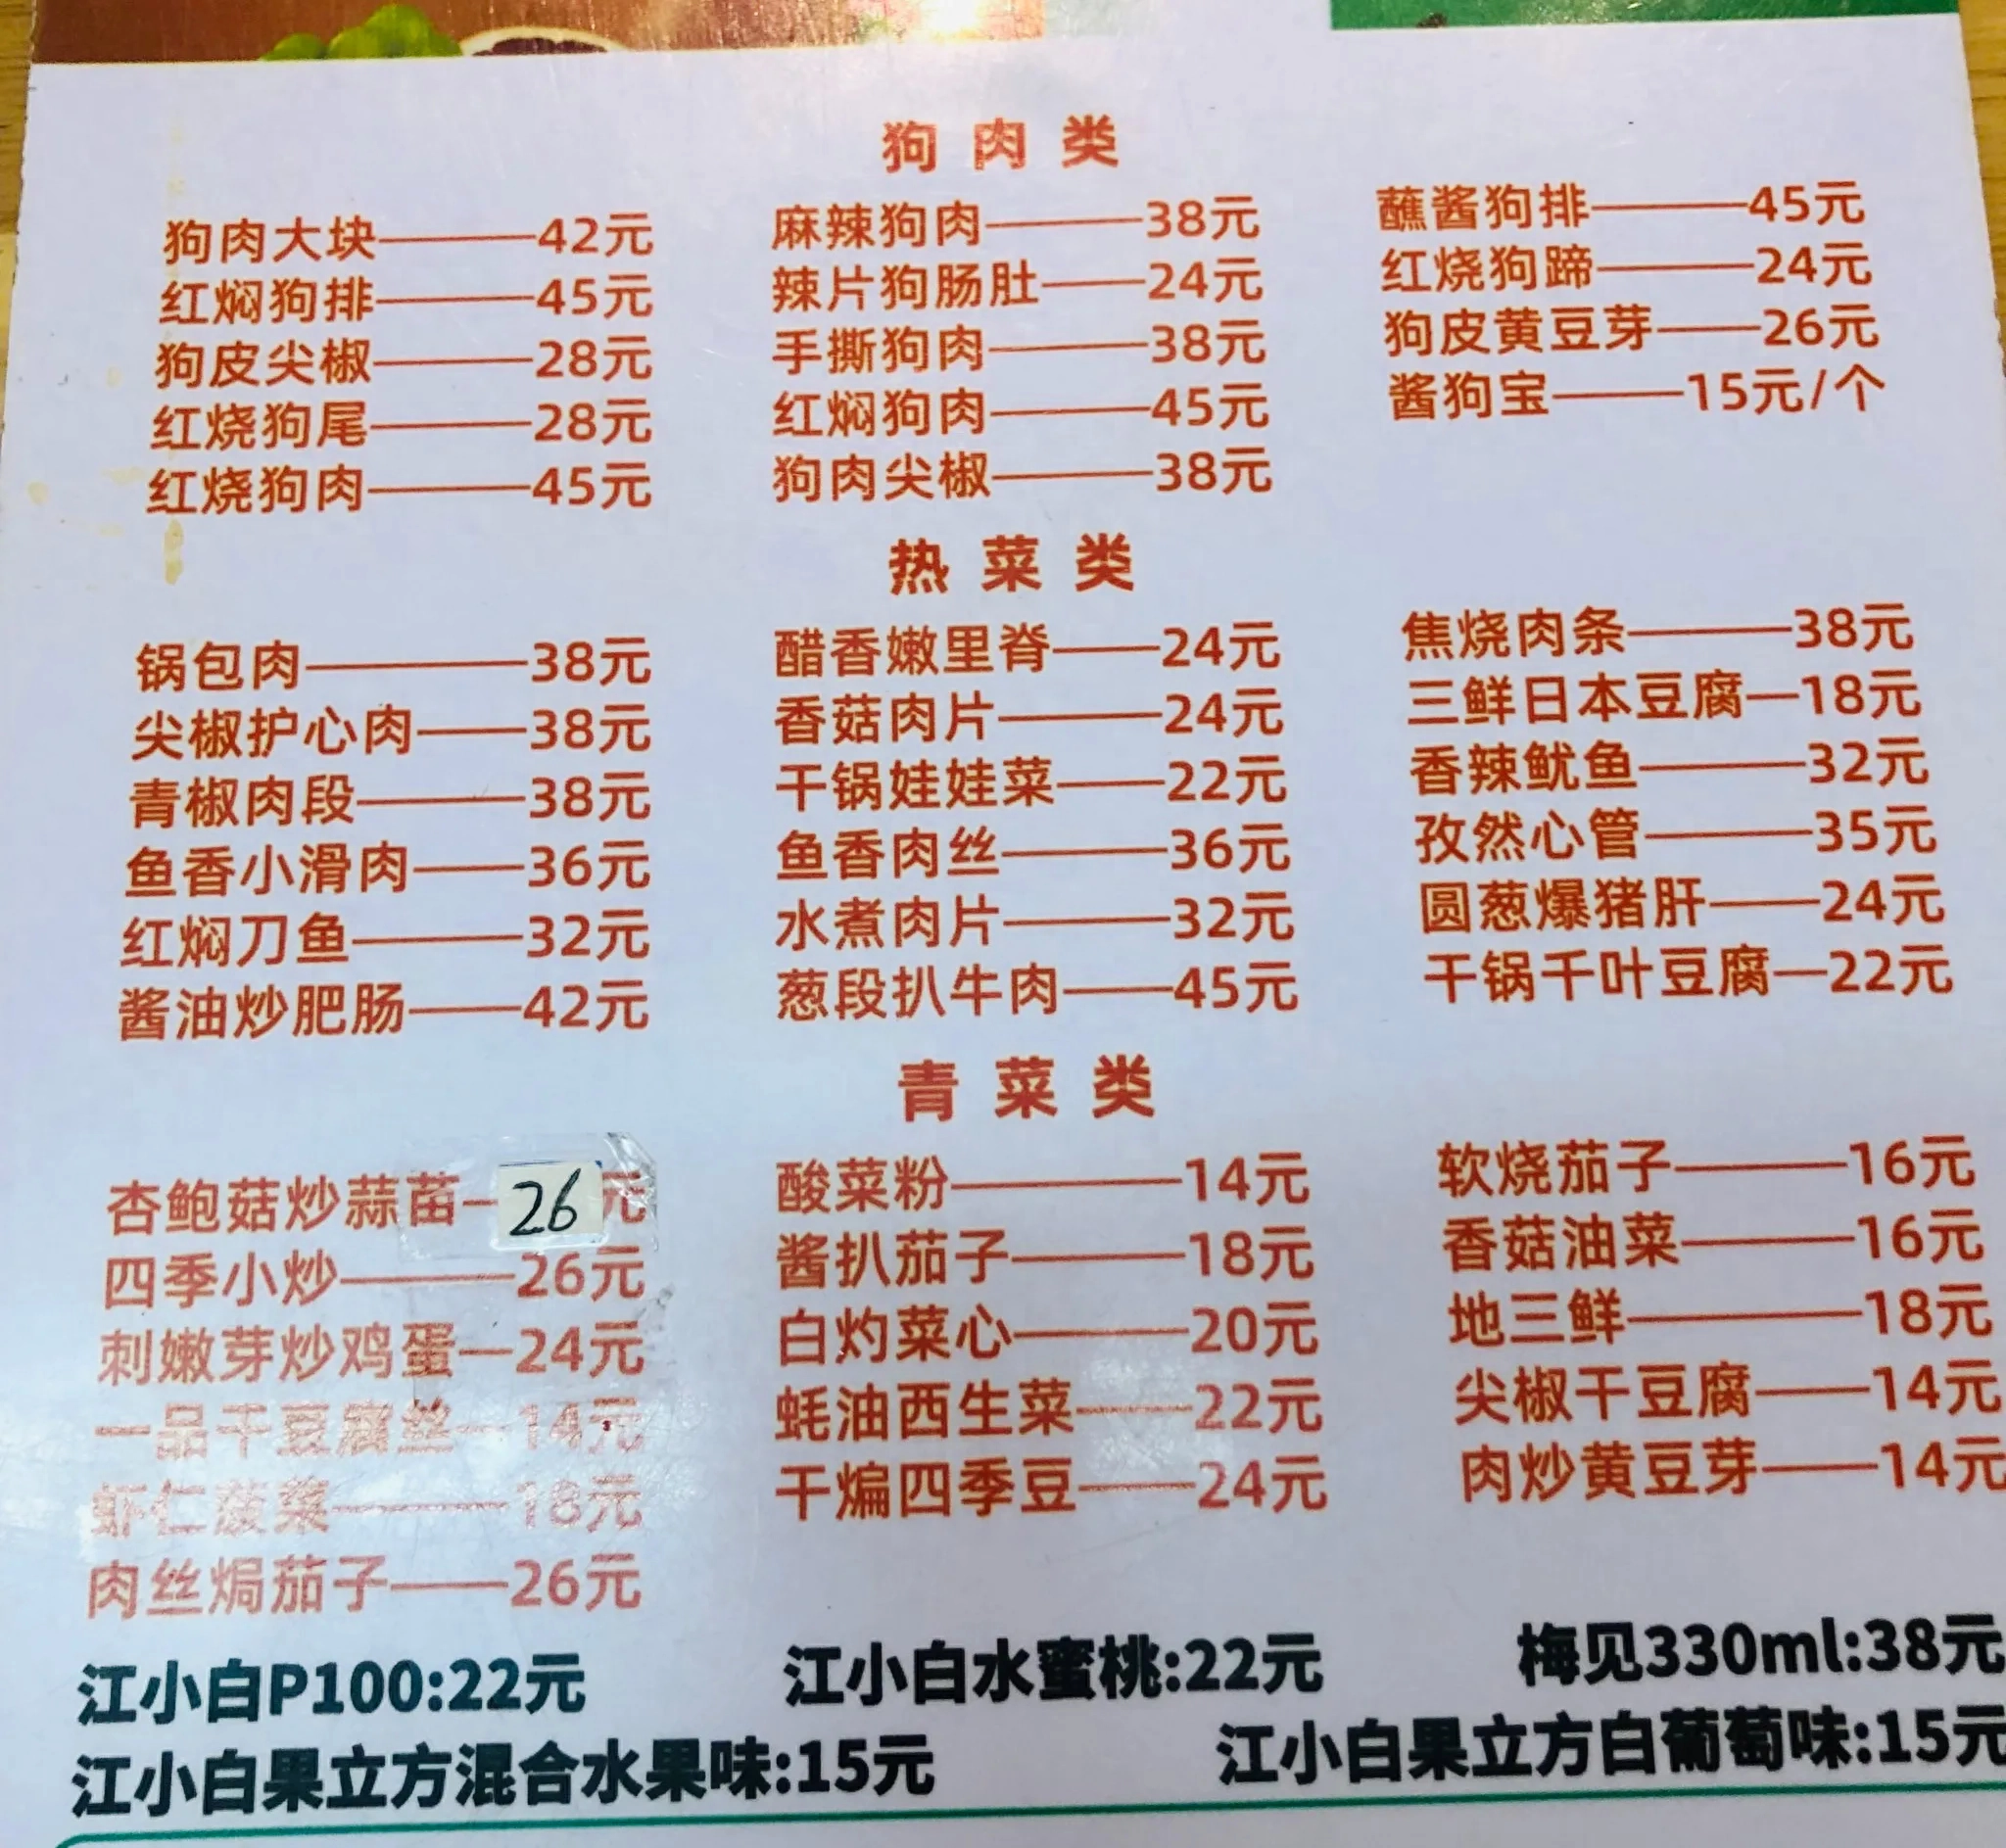 狗肉类
狗肉大块——42元 麻辣狗肉——38元 蘸酱狗排——45元
红焖狗排——45元 辣片狗肠肚——24元 红烧狗蹄——24元
狗皮尖椒——28元 手撕狗肉——38元 狗皮黄豆芽——26元
红烧狗尾——28元 红焖狗肉——45元 酱狗宝——15元/个
红烧狗肉——45元 狗肉尖椒——38元
热菜类
锅包肉——38元 醋香嫩里脊——24元 焦烧肉条——38元
尖椒护心肉——38元 香菇肉片——24元 三鲜日本豆腐—18元
青椒肉段——38元 干锅娃娃菜——22元 香辣鱿鱼——32元
鱼香小滑肉——36元 鱼香肉丝——36元 孜然心管——35元
红焖刀鱼——32元 水煮肉片——32元 圆葱爆猪肝——24元
酱油炒肥肠——42元 葱段扒牛肉——45元 干锅千叶豆腐—22元
青菜类
杏鲍菇炒蒜苗—26元 酸菜粉——14元 软烧茄子——16元
四季小炒——26元 酱扒茄子——18元 香菇油菜——16元
刺嫩芽炒鸡蛋—24元 白灼菜心——20元 地三鲜——18元
一品干豆腐丝—14元 蚝油西生菜——22元 尖椒干豆腐——14元
虾仁菠菜——18元 干煸四季豆——24元 肉炒黄豆芽——14元
肉丝焗茄子——26元
江小白P100:22元 江小白水蜜桃:22元 梅见330ml:38元
江小白果立方混合水果味:15元 江小白果立方白葡萄味:15元